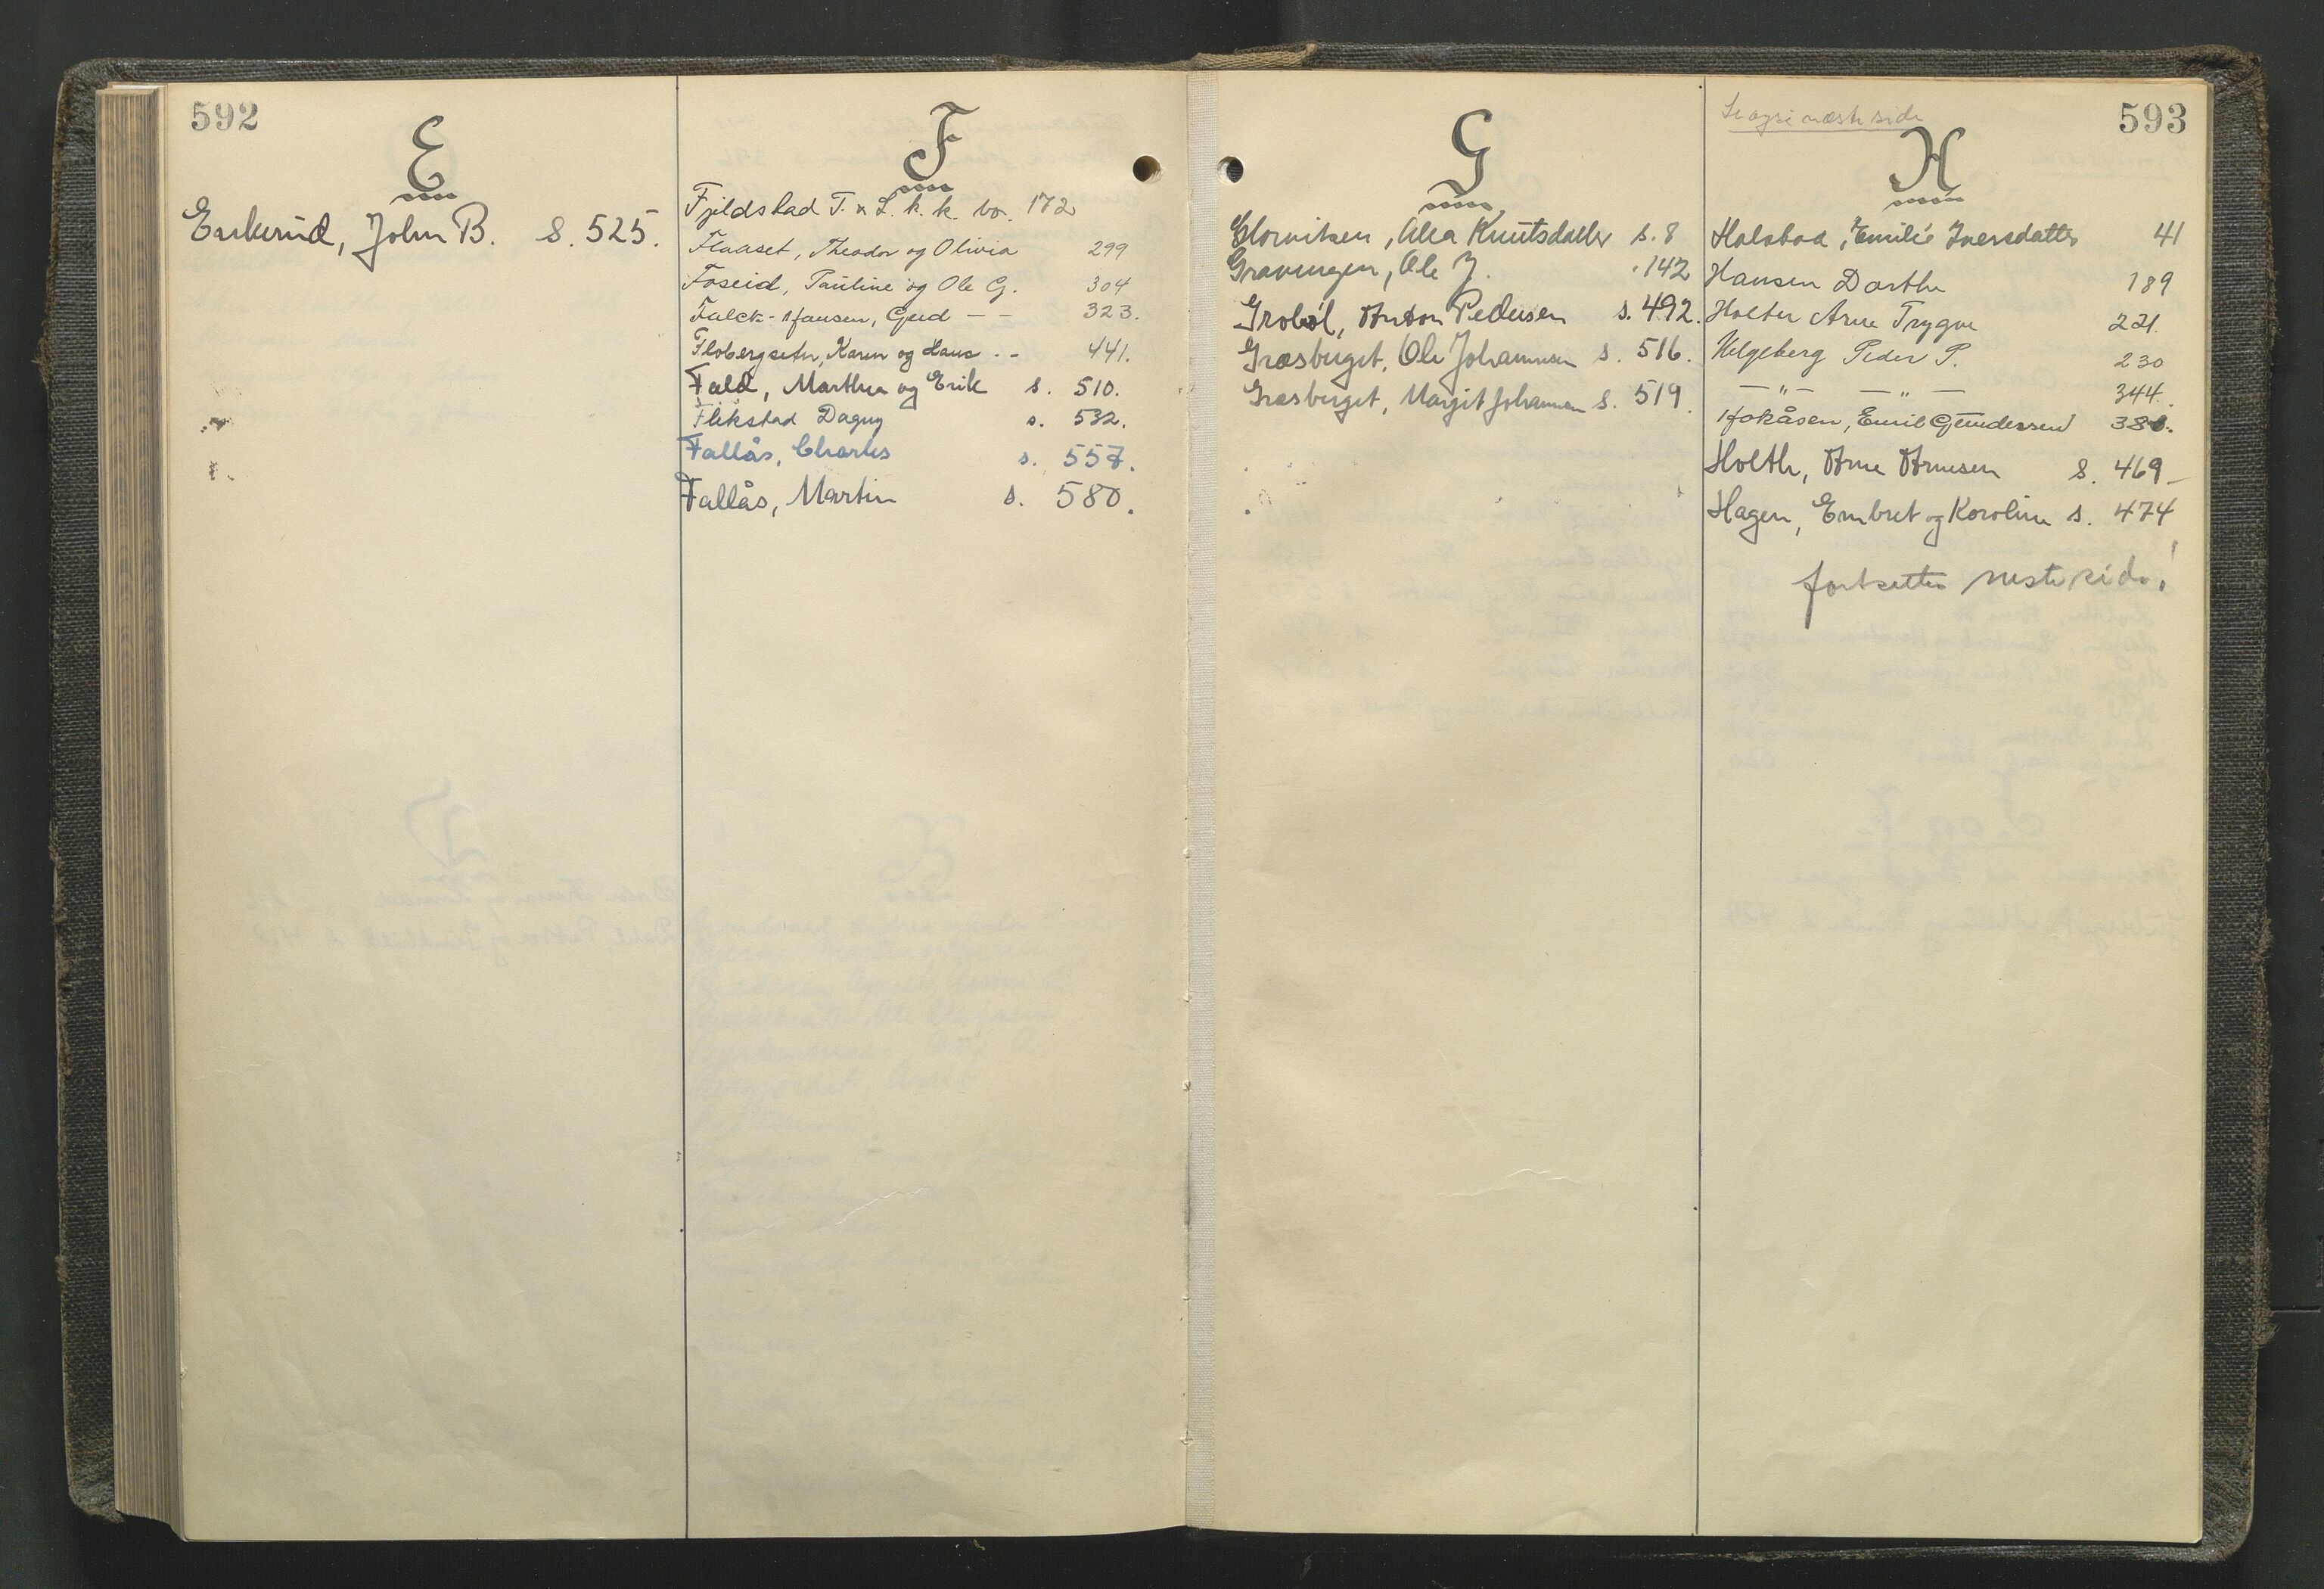 592
E
Enkerud, John B. s. 525.
F
Fjeldstad T. & L. k. k. bo. 172
Flaaset, Theodor og Olivia 299
Foseid, Pauline og Ole G. 304
Falck-Hansen, Gerd - - 323.
Flobergseter, Karen og Hans . - 441.
Fald, Marthea og Erik s. 510.
Flikstad Dagny s. 532.
Fallås, Charles s. 557.
Fallås, Martin s. 580.
G
Glorviken, Alea Knutsdatter s. 8
Gravungen, Ole J. 142
Grobøl, Anton Pedersen s. 492.
Græsberget, Ole Johannesen s. 516.
Græsberget, Margit Johannesen s. 519.
Se også næste side
593
H
Halsbæ, Emilie Iversdatter 41
Hansen Dorthe 189
Holter Arne Trygve 221.
Helgeberg Peder P. 230
— " — — " — 344.
Hokåsen, Emil Gundersen 380.
Holth, Arne Arnesen s. 469-
Hagen, Embret og Karoline s. 474
fortsetter neste side!